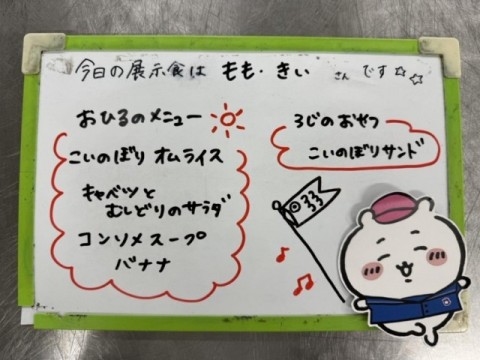 今日の展示食は もも・きい さん です☆☆
おひるのメニュー
こいのぼり オムライス
キャベツと
むしどりのサラダ
コンソメスープ
バナナ
3じのおやつ
こいのぼりサンド